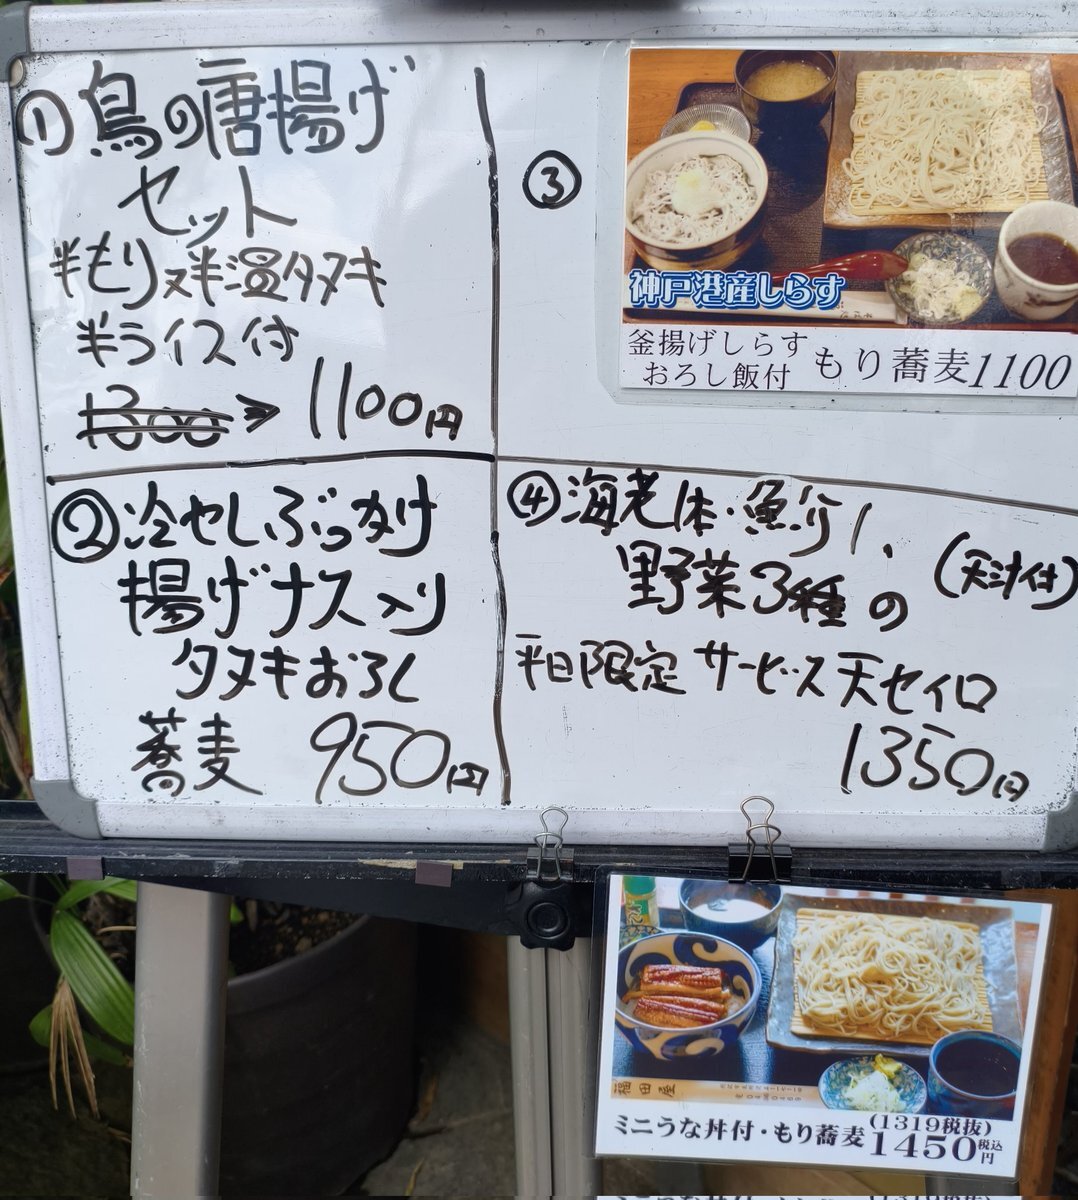 ① 鳥の唐揚げ
セット
半もり又半温タヌキ
半ライス付
1300 → 1100円
② 冷やしぶっかけ
揚げナス入り
タヌキおろし
蕎麦 950円
③
神戸港産しらす
釜揚げしらす
おろし飯付 もり蕎麦1100
④ 海老1本・魚介1、
野菜3種の (天汁付)
平日限定 サービス天セイロ
1350円
福田屋
(1319税抜)
ミニうな丼付・もり蕎麦1450税込円